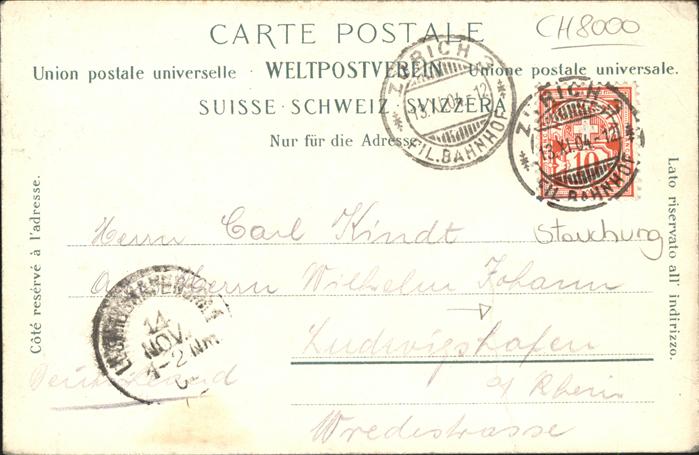 CARTE POSTALE
CH8000
Union postale universelle · WELTPOSTVEREIN · Unione postale universale.
SUISSE · SCHWEIZ · SVIZZERA
Nur für die Adresse
ZÜRICH
13.XI.04.-12
FIL.BAHNHOF
ZÜRICH
13.XI.04.-12
FIL.BAHNHOF
10
Côté reservé à l'adresse.
Lato riservato all' indirizzo.
Herrn Carl Kindt
Herrn Wilhelm Johann
Ludwigshafen
a/ Rhein
Wredestrasse
Deutschland
14
NOV.
1-2 Nm